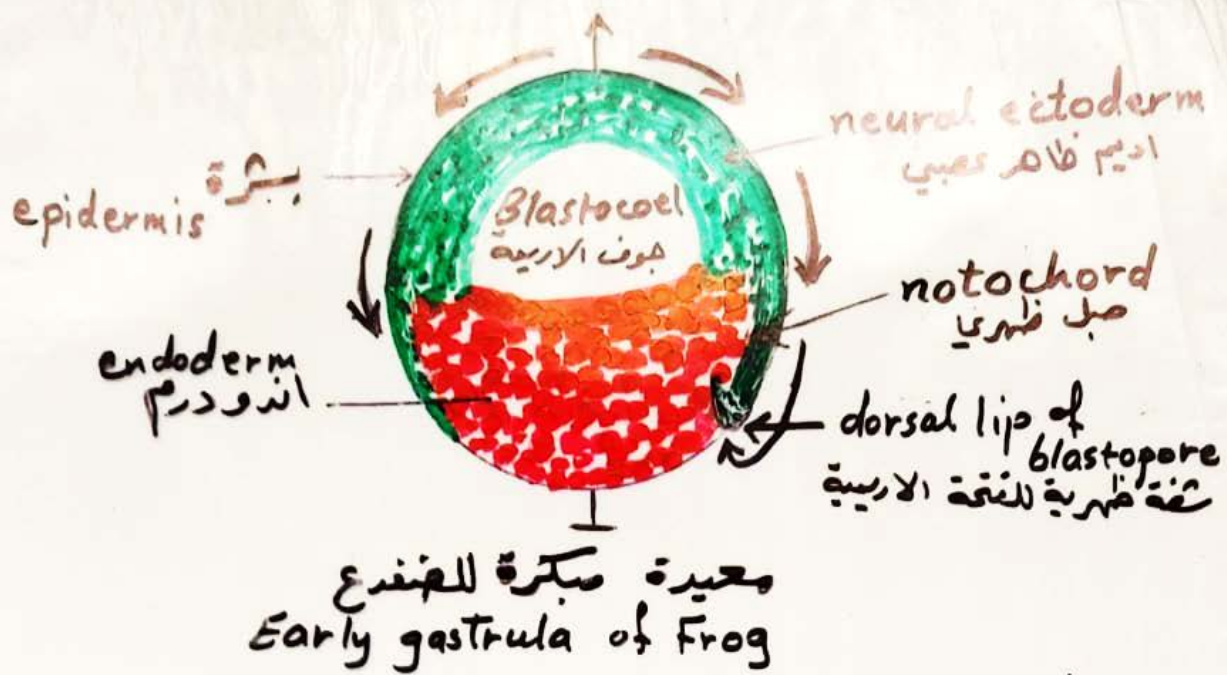 neural ectoderm
اديم ظاهر عصبي
بشرة
epidermis
Blastocoel
جوف الاريمة
notochord
حبل ظهري
endoderm
اندودرم
dorsal lip of
blastopore
شفة ظهرية للفتحة الاريمية
معيدة مبكرة للضفدع
Early gastrula of Frog